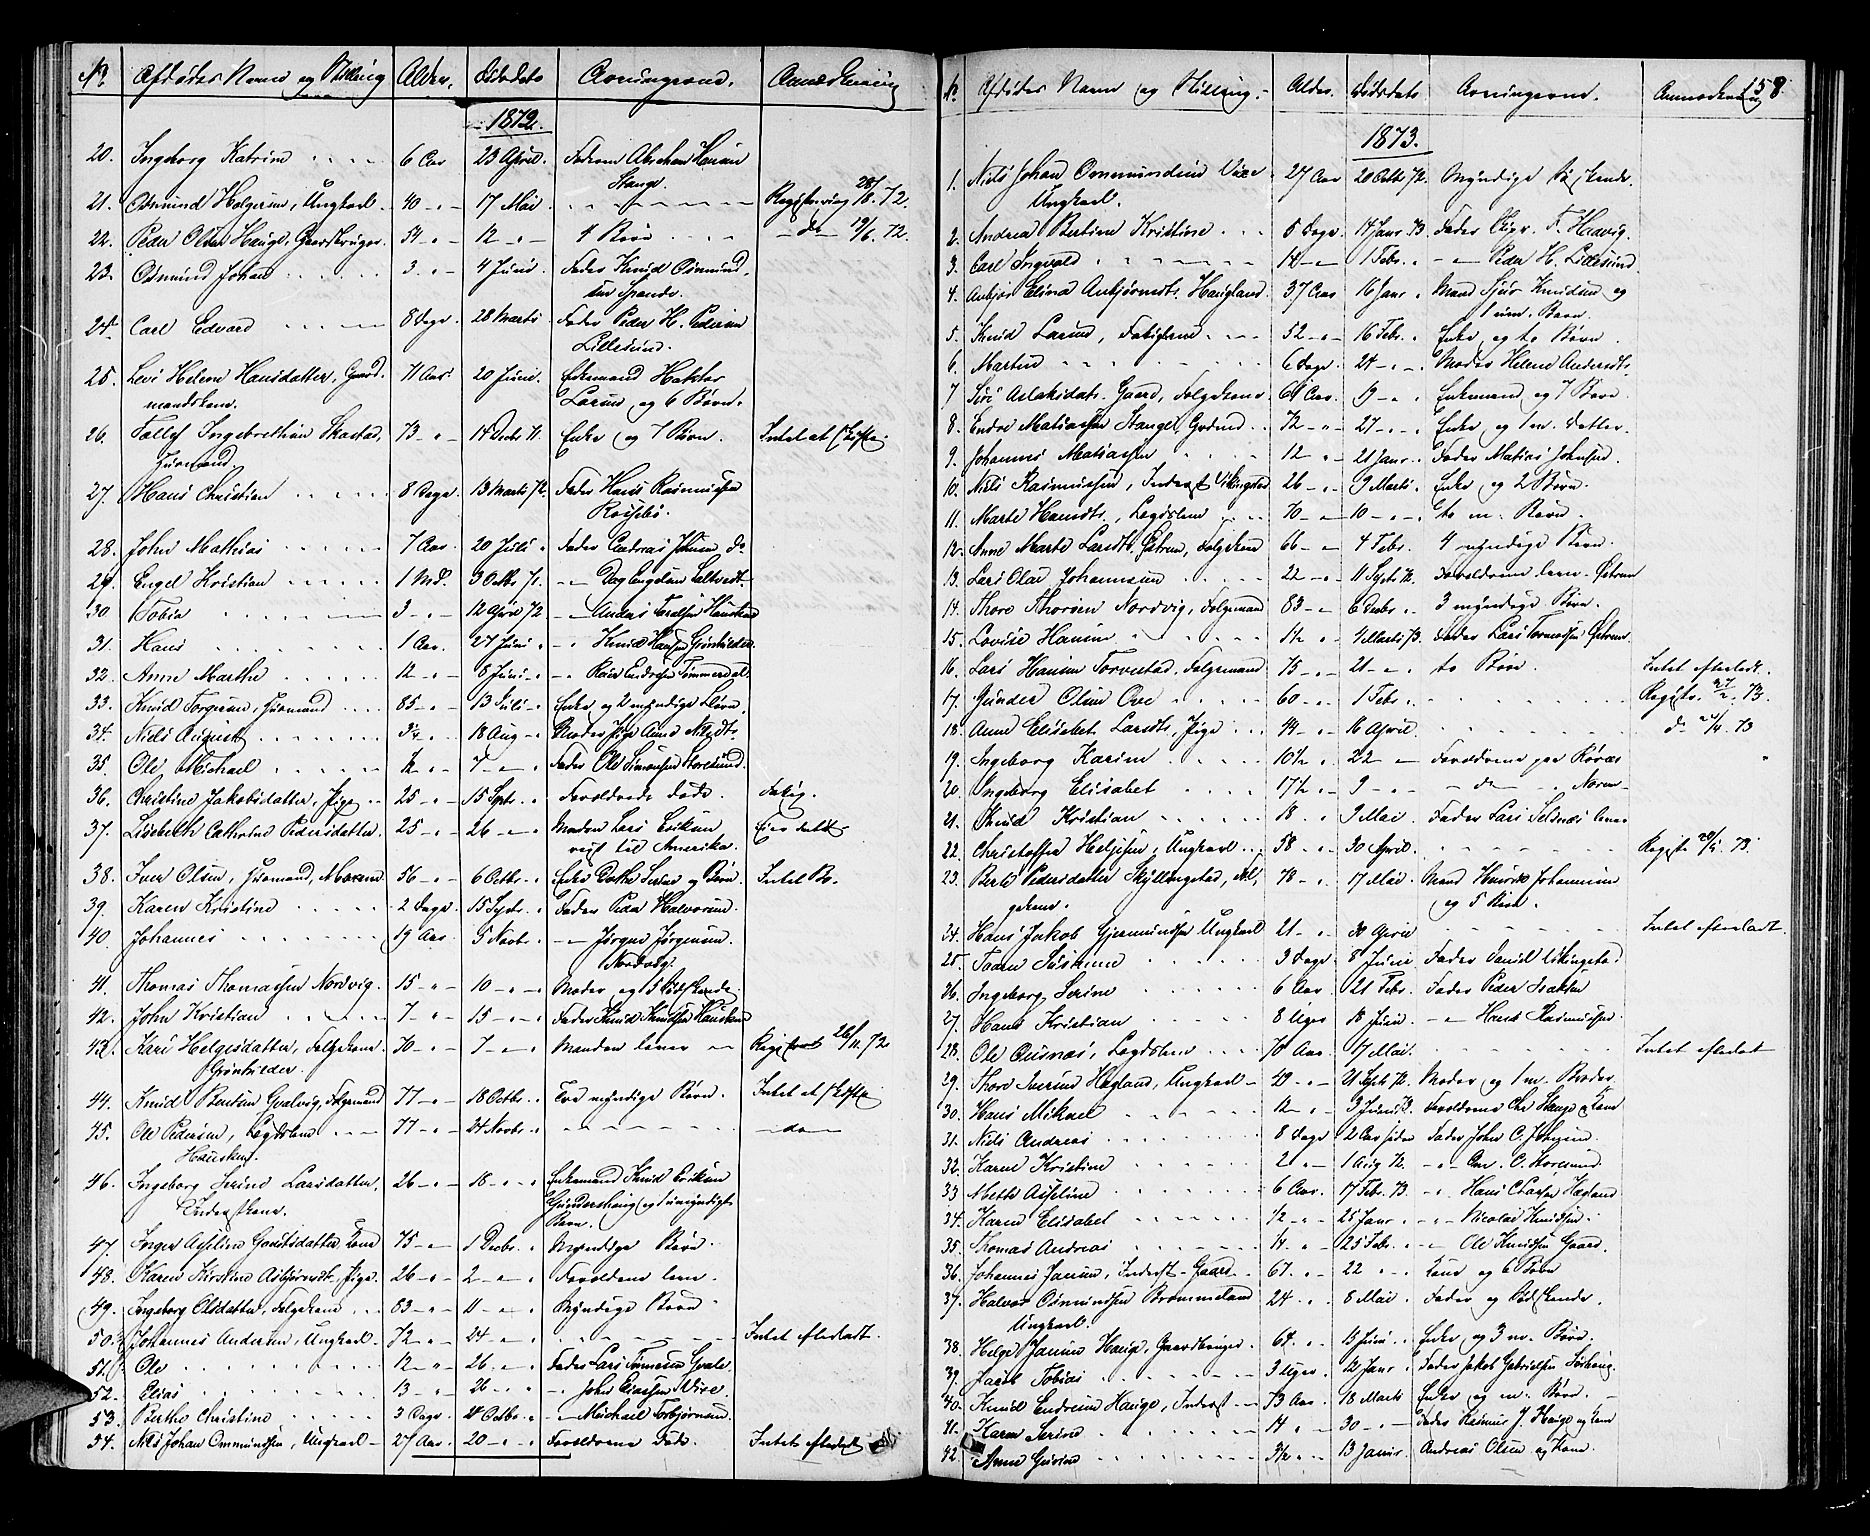 No. Afdødes Navn og Stilling Alder. Dødsdato Arvingerne. Anmærkning
1872.
20. Ingeborg Katrine 6 Aar 23 April. Faderen Abraham Hansen
Stange.
21. Osmund Helgesen, Ungkarl. 40 - " - 17 Mai Registrering 28/8. 72.
22. Peder Olsen Hauge, Gaardbruger. 54 - " - 12 - " - 4 Børn - do - 19/6. 72.
23. Osmund Johan 3 - " - 4 Juni Fader Knud Osmund-
sen Spande.
24. Carl Edvard 8 Dage. 28 Marts Fader Peder H. Pedersen
Lillesund.
25. Levi Helene Hansdatter, Gaard- 71 Aar. 20 Juni. Enkemand Haktor
mandskone. Larsen og 6 Børn.
26. Tollef Ingebretsen Skastad, 73 - " - 14 Decbr 71. Enke og 7 Børn. Intet at skifte.
Huusmand.
27. Hans Christian 8 Dage. 13 Marts 72. Fader Hans Rasmussen
28. John Mathias 7 Aar. 20 Juli " Fader Andreas Johnsen do
29. Engel Kristian 1 Md. 3 Octbr 71. - " - Dag Engelsen
30 Tobia 3 - " - 12 April 72 - " -
31. Hans 1 Aar. 27 Juni " - " Knud Hansen Grønhilder.
32. Anne Marthe 12 - " - 8 Juni - " - " Tømmerdal.
33. Knud Torgersen, Huusmand 85 - " - 13 Juli - " Enke og 2 myndige Børn.
34. Niels August 3/4 - " - 18 Aug - " Moder Pige Anna Nilsdtr.
35. Ole Michael 1/2 - " - 7 - " - Fader Ole Simonsen Storesund.
36. Christine Jakobsdatter, Pige 25 - " - 15 Septr. " Forældrene døde. Fattig.
37. Lisebeth Cathrine Pedersdatter. 25 - " - 26 - " - Manden Lars Eriksen
reist til Amerika.
38. Iver Olsen, Huusmand, 56 - " - 6 Octbr. " Enke og Børn Intet Bo.
39. Karen Kristine 2 Dage. 15 Septr. " Fader Peder Halvorsen.
40. Johannes 19 Aar. 5 Novbr. " - " - Jørgen Jørgensen.
Nordvig.
41. Thomas Thomassen Nordvig. 15 - " - 10 - " - Moder og 3 Sødskende.
42. John Kristian 7 - " - 15 - " - Fader Knud Knudsen Hausken
43. Kari Helgesdatter, Følgekone. 70 - " - 7 - " - Manden lever - " - Registreret 26/11. 72
Grønhilder.
44. Knud Bentsen Gvalvig, Følgemand 77 - " - 18 Octbr. " Tre myndige Børn. Intet at skifte
45. Ole Pedersen, Lægdslem 77 - " - 24 Novbr. " - do -
Hausken.
46. Ingeborg Serine Larsdatter, 26 - " - 18 - " - Enkemand Knud Eriksen
Inderstkone. Gundershaug og 1 umyndigt
Barn.
47. Inger Aiseline Gautsdatter, Kone 75 - " - 1 Decbr. " Myndige Børn.
48. Karen Kirstine Asbjørnsdt. Pige. 26 - " - 2 - " - Forældrene leve.
49. Ingeborg Olsdatter, Følgekone 83 - " - 11 - " - Myndige Børn.
50. Johannes Andersen, Ungkarl. 72 - " - 24 - " - Intet efterladt.
51. Ole 12 - " - 26. - " - Fader Lars Tønnesen Gvale.
52. Elias 13 - " - 26 - " - - " - John Eliassen Vixe.
53. Berthe Christine 3 Dage. 24 Octbr. " - " - Michael Torbjørnsen.
54. Nils Johan Ommundsen, Ungkarl 27 Aar. 20 - " - Forældrene døde. Intet efterladt
No. Afdødes Navn og Stilling. Alder. Dødsdato. Arvingerne. Anmærkning 158.
1873.
1. Niels Johan Ommundsen Vixe 27 Aar 20 Octbr 72. Myndige Sødskende.
Ungkarl.
2. Andrea Bertine Kristine 5 Dage. 14 Janr. 73. Fader F. Hadvig.
3. Carl Ingvald 14 - " - 1 Febr. " - " - Peder H. Lillesund.
4. Anbjør Elina Anbjørnsdt. Haugland. 37 Aar 16 Janr. " Mand Sjur Knudsen og
1 um. Barn.
5. Knud Larsen, Fattiglem 52 - " - 16 Febr. " Enke og to Børn.
6. Martin 6 Dage. 24 - " - Moder Helene Andersdt.
7 Siri Aslaksdatr. Gaard, Følgekone 69 Aar. 9 - " - Enkemand og 7 Børn
8. Endre Matiassen Stange, Grdmd. 72 - " - 27 - " - Enke og 1 m. Datter.
9. Johannes Matiassen 12 - " - 21 Janr. " Fader Matias Johnsen.
10. Niels Rasmussen, Inderst Vikingstad 26 - " - 9 Marts. " Enke og 2 Børn.
11. Marte Hansdt., Lægdslem 70 - " - 10 - " - to m. Børn.
12. Anne Marte Larsdt. Østrem, Følgekone 66 - " - 4 Febr. " 4 myndige Børn.
13. Lars Olai Johannesen 22 - " - 11 Septr 72. Forældrene leve. Østrem
14. Thore Thorsen Nordvig, Følgemand 83 - " - 6 Decbr. " 3 myndige Børn.
15. Lovise Hansine 1 1/2 - " - 4 Marts 73. Fader Lars Tormodsen Østrem.
16. Lars Hansen Torvestad, Følgemand 75 - " - 21 - " - to Børn. Intet efterladt.
17. Gunder Olsen Ove 60 - " - 1 Febr. " Registr. 27/2. 73.
18. Anne Elisabet Larsdt., Pige 44 - " - 16 April. do 21/4. 73
19. Ingeborg Karine 10 1/2 " 22 - " - Forældrene paa Røvær
20. Ingeborg Elisabet 17 1/2 " - 9 - " - - do -
21. Knud Kristian 18 " 9 Mai " Fader Lars Selsnæs lever
22. Christoffer Helgesen, Ungkarl 58 - " - 30 April. Registr. 29/5. 73.
23. Berte Pedersdatter Skyllingstad, Føl- 78 - " - 17 Mai. Mand Henrik Johannesen
gekone. og 5 Børn.
24. Hans Jakob Gjermundsen Ungkarl 21 - " - 30 April Intet efterladt.
25. Taarn Susanne 3 Dage 8 Juni Fader Daniel Vikingstad
26. Ingeborg Serine 6 Aar. 21 Febr. Fader Peder Isaksen
27. Hans Kristian 8 Uger 18 Juni - " - Hans Rasmussen.
28. Ole Ousnæs, Lægdslem 70 Aar. 17 Mai. Intet efterladt
29. Thore Iversen Høgland, Ungkarl 49 - " - 21 Septr 72. Moder og 1 m. Broder
30. Hans Mikael 12 - " - 3 Juni 73. Forældrene Chr. Stange og Kone
31. Niels Andreas 8 Dage 2 Aar siden Fader John C. Johnsen.
32. Karen Kristine 2 " - 1 Aug 72. - " - C. Storesund
33 Mette Aiseline 6 Aar. 17 Febr. 73. - " Hans Clausen Høgland
34. Karen Elisabet 1/2 - " - 25 Janr. " - " - Nicolai Knudsen.
35. Thomas Andreas 1/4 " - 25 Febr. " - " - Ole Knudsen Gaard.
36. Johannes Jansen, Inderst - Gaard. 67. " - 22 - " - Kone og 6 Børn
37. Halvor Osmundsen Brommeland 24 " - 8 Mai. " Fader og Sødskende.
Ungkarl.
38. Helge Jansen Hauge, Gaardbruger 64. " - 13 Juni. " Enke og 3 m. Børn.
39. Jakob Tobias 3 Uger. 12 Janr. " Fader Jakob Gabrielsen Sørhaug.
40. Knud Endresen Hauge, Inderst 73 Aar. 18 Marts Enke og m. Børn.
41. Karen Serine 14 " - 30 - " - Fader Rasmus J. Hauge og Kone
42. Anne Gurine 3/4 - " - 13 Janr. Andreas Olsen og Kone.